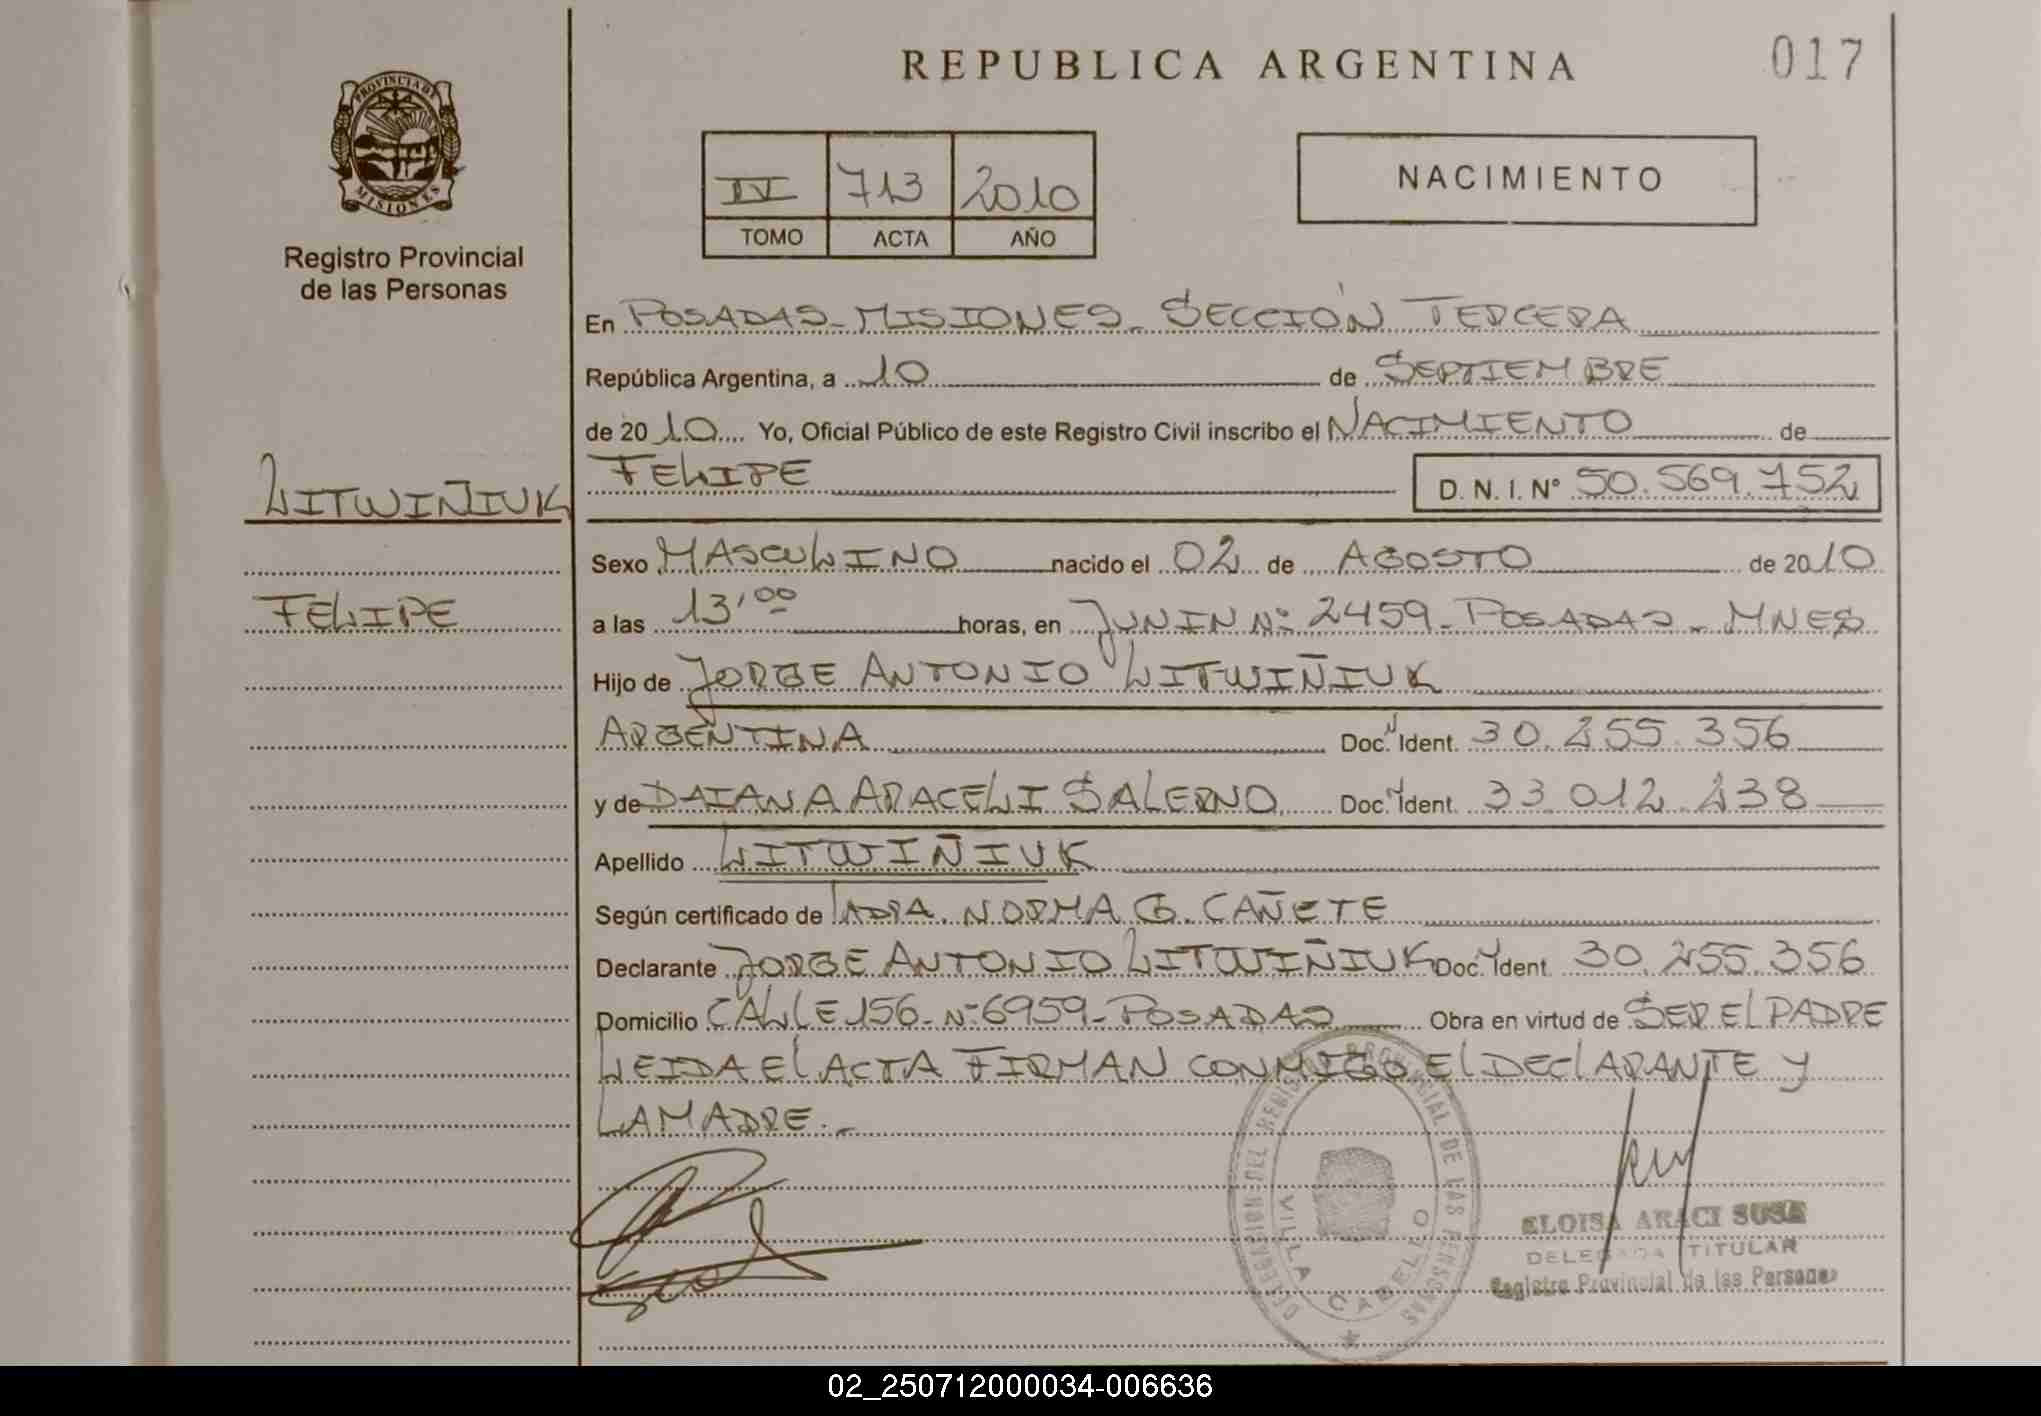 REPUBLICA ARGENTINA
017
PROVINCIA DE
MISIONES
Registro Provincial
de las Personas
IV 713 2010
TOMO ACTA AÑO
NACIMIENTO
En POSADAS-MISIONES-SECCIÓN TERCERA
República Argentina, a 10 de SEPTIEMBRE
de 2010 Yo, Oficial Público de este Registro Civil inscribo el NACIMIENTO de
FELIPE D. N. I. Nº 50.569.752
LITWIÑIUK
Sexo MASCULINO nacido el 02 de AGOSTO de 2010
FELIPE
a las 13,00 horas, en JUNIN Nº 2459-POSADAS-MNES
Hijo de JORGE ANTONIO LITWIÑIUK
ARGENTINA Doc. Ident. 30.255.356
y de DAIANA ARACELI SALERNO Doc. Ident. 33.012.238
Apellido LITWIÑIUK
Según certificado de LADRA. NORMA G. CAÑETE
Declarante JORGE ANTONIO LITWIÑIUK Doc. Ident. 30.255.356
Domicilio CALLE 156-Nº6959-POSADAS Obra en virtud de SER EL PADRE
LEIDA EL ACTA FIRMAN CONMIGO EL DECLARANTE Y
LA MADRE.-
DELEGACION DEL REGISTRO PROVINCIAL DE LAS PERSONAS
VILLA CABELLO
ELOISA ARACI SUSE
DELEGADA TITULAR
Registro Provincial de las Personas
02_250712000034-006636